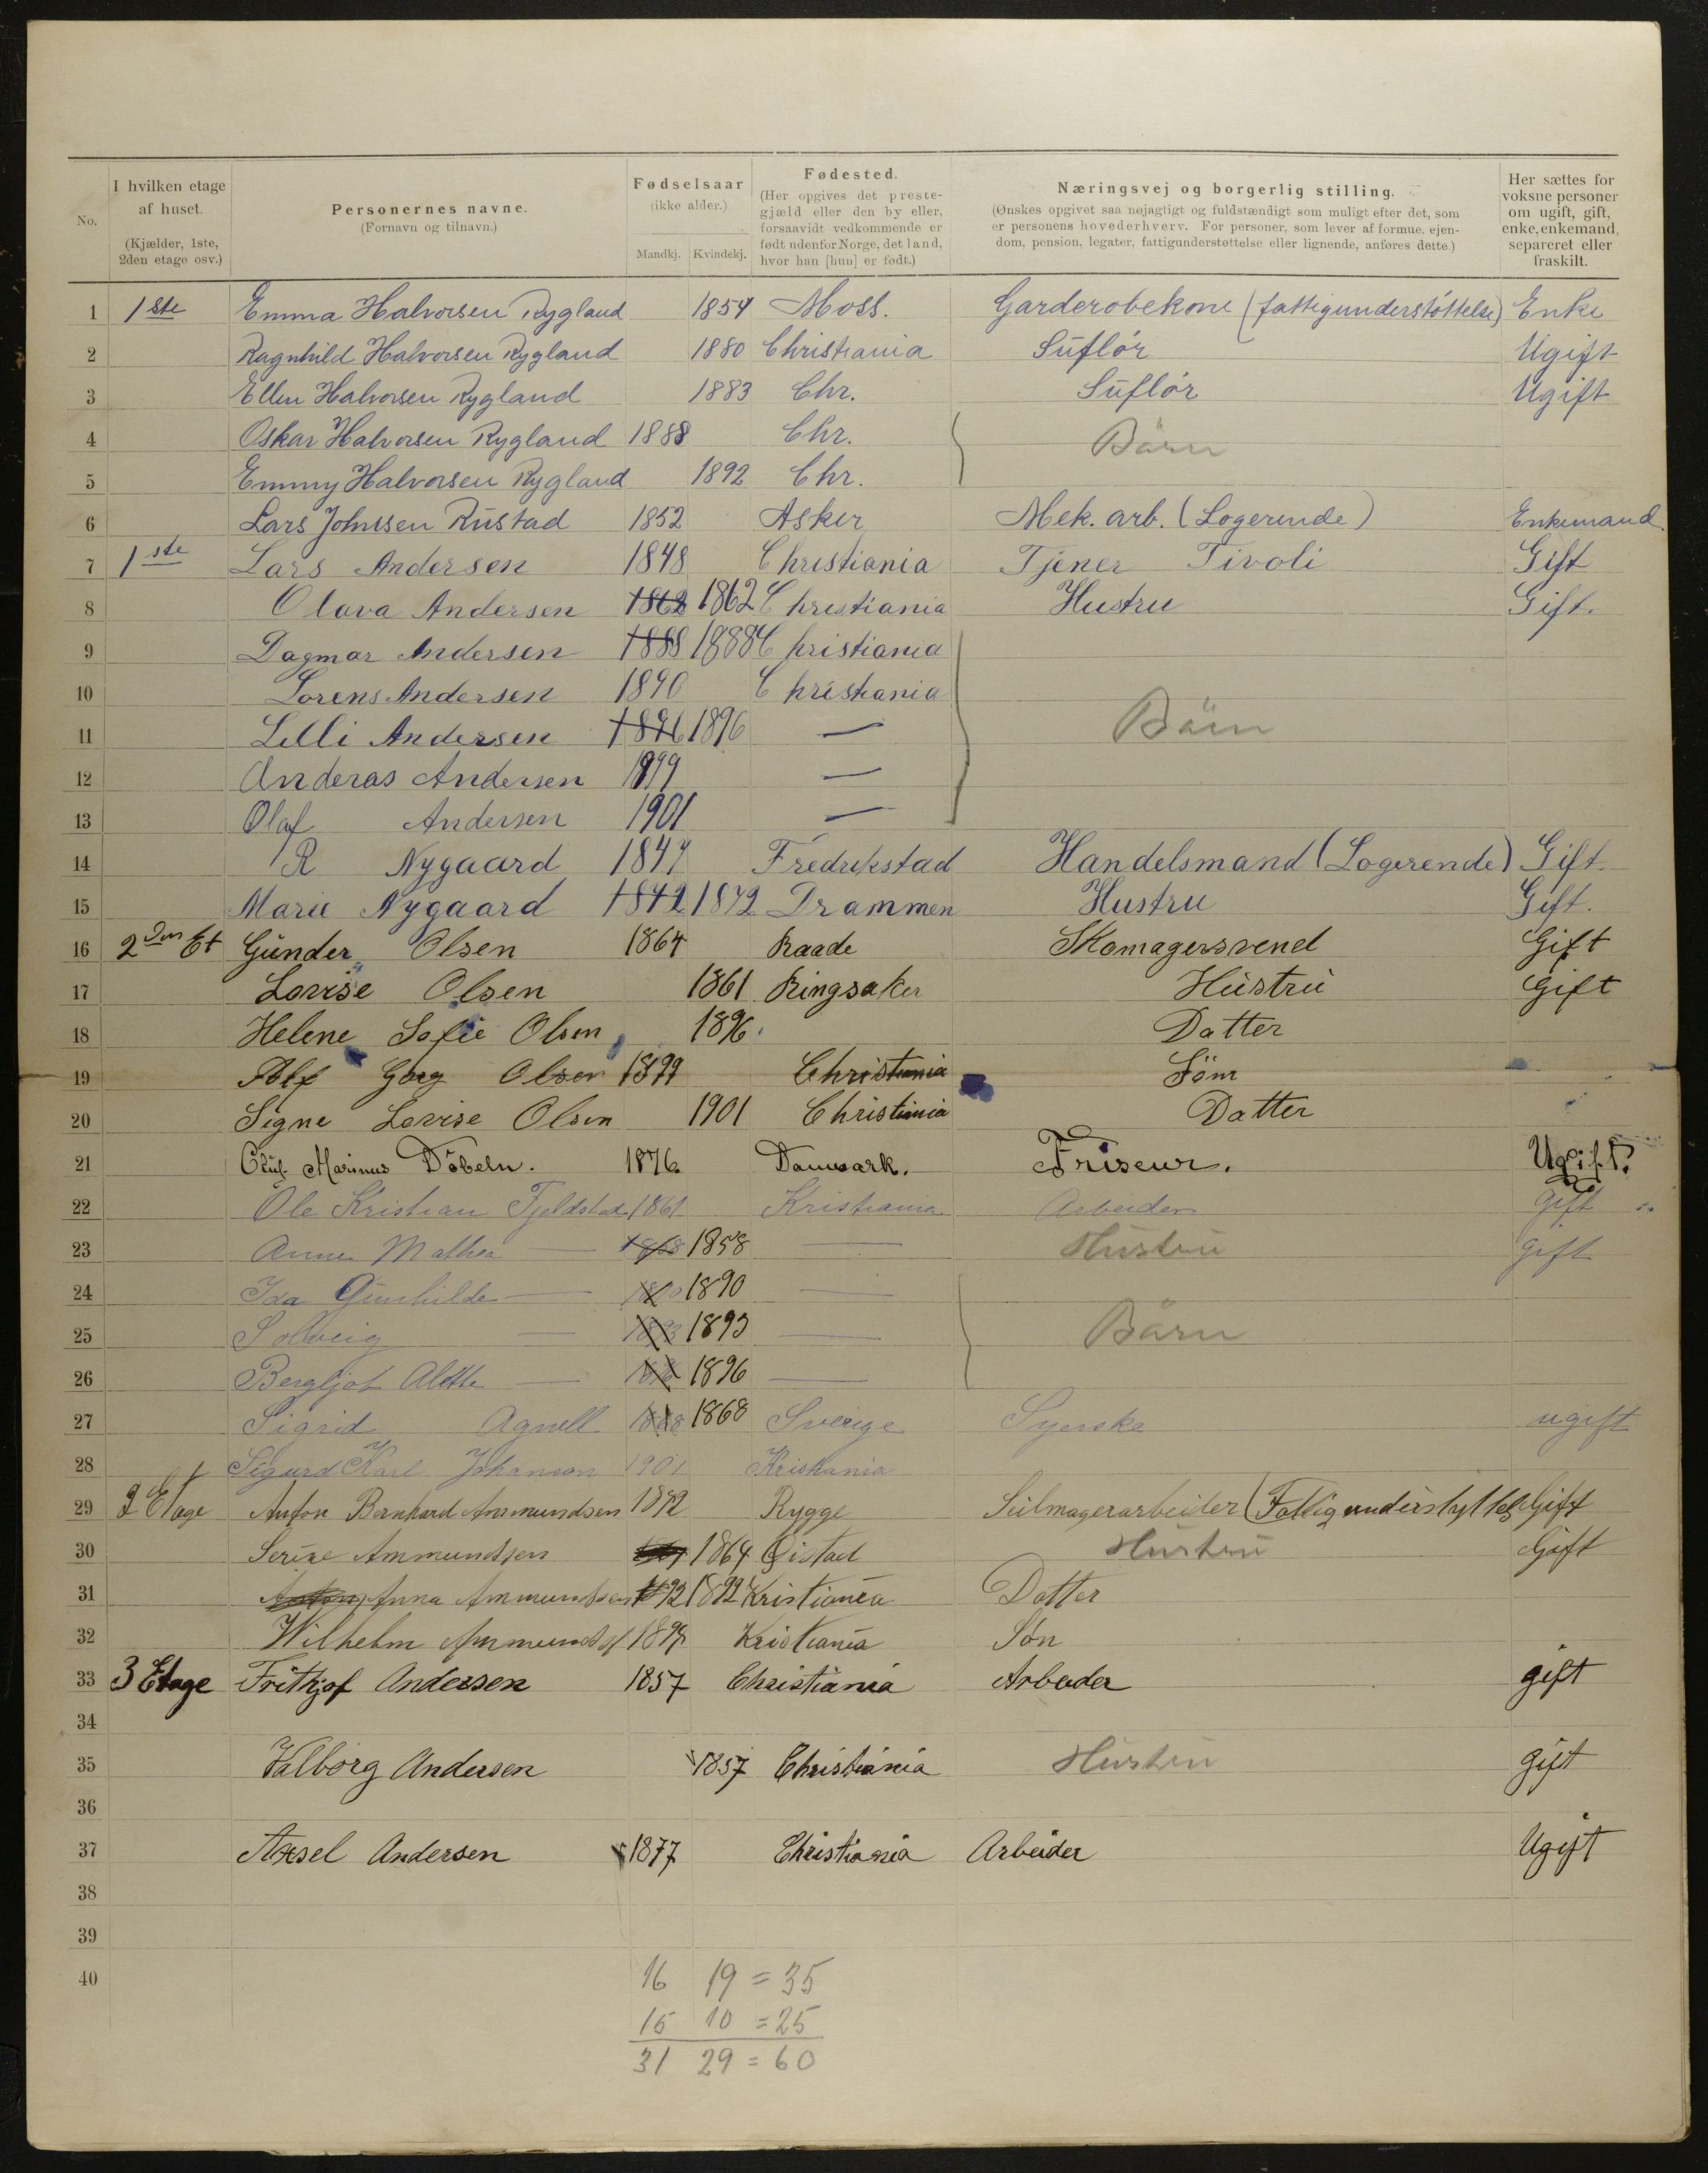 No. I hvilken etage af huset. (Kjælder, 1ste, 2den etage osv.) Personernes navne. (Fornavn og tilnavn.) Fødselsaar (ikke alder.) Mandkj. Kvindekj. Fødested. (Her opgives det prestegjæld eller den by eller, forsaavidt vedkommende er født udenfor Norge, det land, hvor han [hun] er født.) Næringsvej og borgerlig stilling. (Ønskes opgivet saa nøjagtigt og fuldstændigt som muligt efter det, som er personens hovederhverv. For personer, som lever af formue, ejendom, pension, legater, fattigunderstøttelse eller lignende, anføres dette.) Her sættes for voksne personer om ugift, gift, enke, enkemand, separeret eller fraskilt.
1 1ste Emma Halvorsen Rygland 1854 Moss. Garderobekone (fattigunderstøttelse) Enke
2 Ragnhild Halvorsen Rygland 1880 Christiania Suflør Ugift
3 Ellen Halvorsen Rygland 1883 Chr. Suflør Ugift
4 Oskar Halvorsen Rygland 1888 Chr. Börn
5 Emmy Halvorsen Rygland 1892 Chr.
6 Lars Johnsen Rustad 1852 Asker Mek. arb. (Logerende) Enkemand.
7 1ste Lars Andersen 1848 Christiania Tjener Tivoli Gift
8 Olava Andersen 1862 1862 Christiania Hustru Gift.
9 Dagmar Andersen 1888 1888 Christiania
10 Lorens Andersen 1890 Christiania
11 Lilli Andersen 1896 1896 — Börn
12 Anderas Andersen 1899 —
13 Olaf Andersen 1901 —
14 R Nygaard 1847 Fredrikstad Handelsmand (Logerende) Gift.
15 Marie Nygaard 1842 1842 Drammen Hustru Gift.
16 2den Et Gunder Olsen 1864 Raade Skomagersvend Gift
17 Lovise Olsen 1861 Ringsaker Hustru Gift
18 Helene Sofie Olsen 1896 Datter
19 Olsen 1899 Christiania Sönn
20 Signe Lovise Olsen 1901 Christiania Datter
21 Oluf Marinus Döbeln. 1876 Danmark. Friseur. Ugift.
22 Ole Kristian Fjeldstad 1861 Kristiania Arbeider gift
23 Anne Mathea — 1858 1858 — Hustru gift
24 Ida Gunhilde — 1890 1890 —
25 Solveig — 1893 1893 — Börn
26 Bergljot Alette — 1896 1896 —
27 Sigrid Agnell 1868 1868 Sverige Syerske ugift
28 Sigurd Karl Johanson 1901 Kristiania
29 2 Etage Anton Bernhard Ammundsen 1872 Rygge Seilmagerarbeider (Fattigunderstyttelse Gift
30 Serine Ammundsen 1864 Hustru Gift
31 Anna Ammundsen 1892 1892 Kristiania Datter
32 Wilhelm Ammunds 1898 Kristiania Søn
33 3 Etage Frithjof Andersen 1857 Christiania Arbeider gift
34
35 Valborg Andersen 1857 Christiania Hustru gift
36
37 Axsel Andersen 1877 Christiania Arbeider Ugift
38
39
40
16 19 = 35
15 10 = 25
31 29 = 60